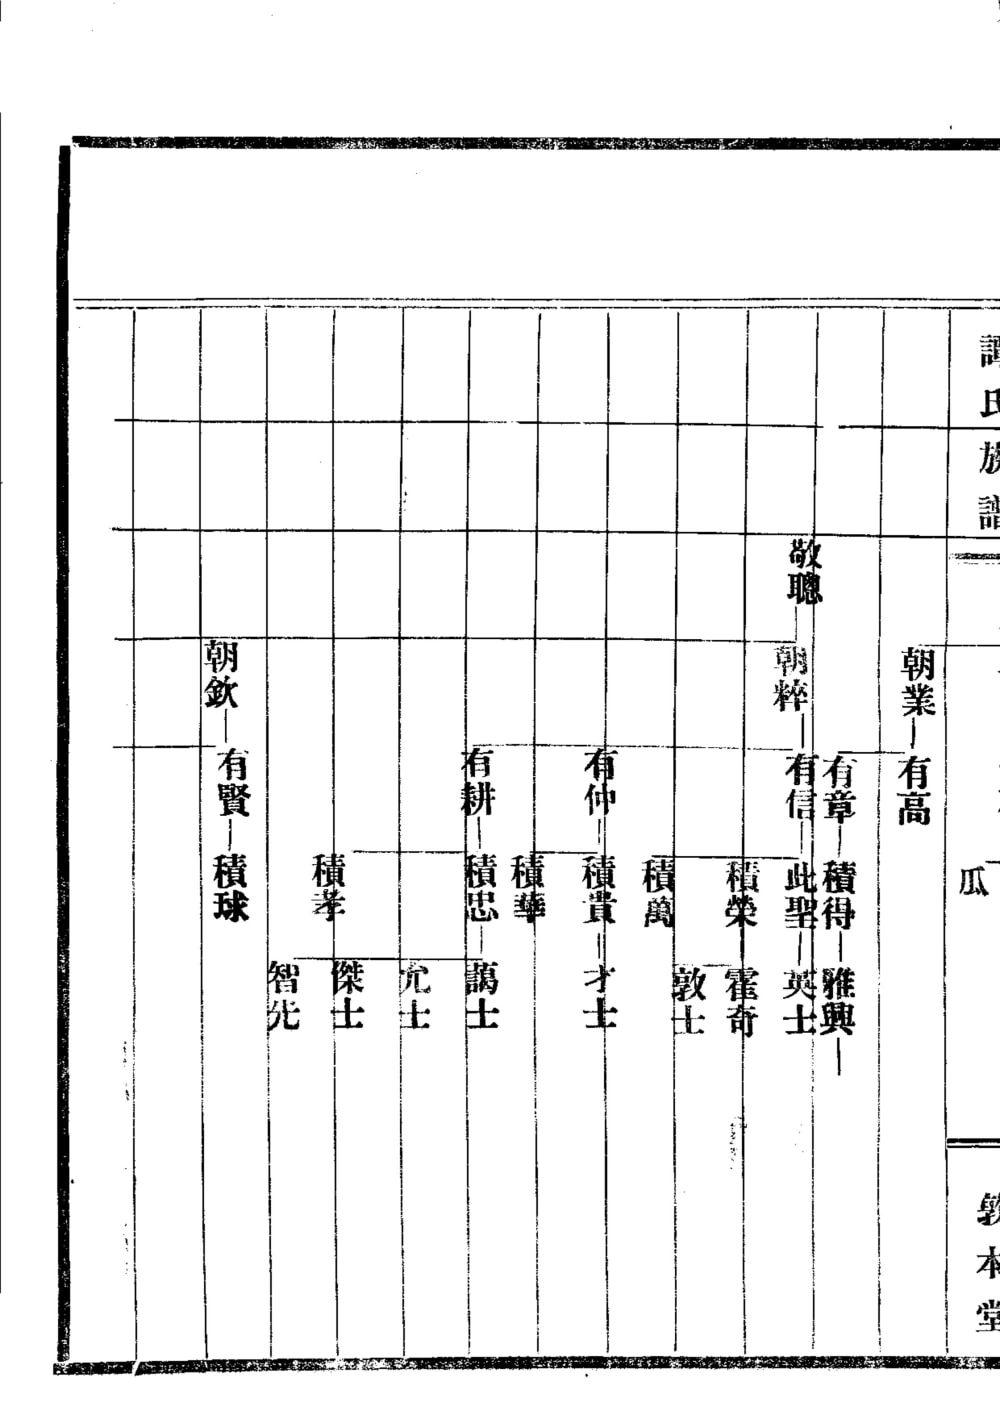 譚氏族譜
瓜
敦本堂
朝業
有高
有章
積得
雅興
敬聰
朝粹
有信
此聖
英士
積榮
霍奇
敦士
積萬
有仲
積貴
才士
積華
有耕
積忠
藹士
允士
傑士
積孝
智先
朝欽
有賢
積球